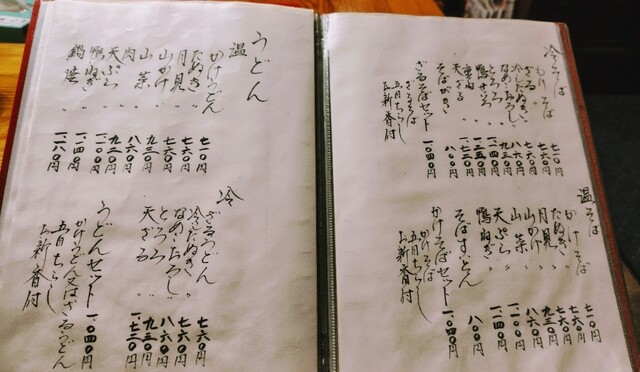 冷そば
もりそば 七一〇円
ざる 〃 七六〇円
冷したぬき 〃 七六〇円
なめこおろし 〃 八六〇円
とろろ 〃 九三〇円
鴨せいろ 〃
天ざる 〃
そばがき 八〇〇円
ざるそばセット 一、〇四〇円
ざるそば
五目ちらし
お新香付
温そば
かけそば 七一〇円
たぬき 〃 七六〇円
月見 〃 七六〇円
山かけ 〃 九三〇円
山菜 〃 八六〇円
天ぷら 〃
鴨ねぎ 〃 一、一〇〇円
そばすいとん 八〇〇円
かけそばセット 一、〇四〇円
かけそば
五目ちらし
お新香付
うどん
温
かけうどん 七一〇円
たぬき 〃 七六〇円
月見 〃 七六〇円
山かけ 〃 九三〇円
山菜 〃 八六〇円
肉 〃 九三〇円
天ぷら 〃
鴨ねぎ 〃 一、一〇〇円
鍋焼 〃 一、一八〇円
冷
ざるうどん 七六〇円
冷したぬき 〃 七六〇円
なめこおろし 〃 八六〇円
とろろ 〃 九三〇円
天ざる 〃
うどんセット 一、〇四〇円
かけうどん又はざるうどん
五目ちらし
お新香付